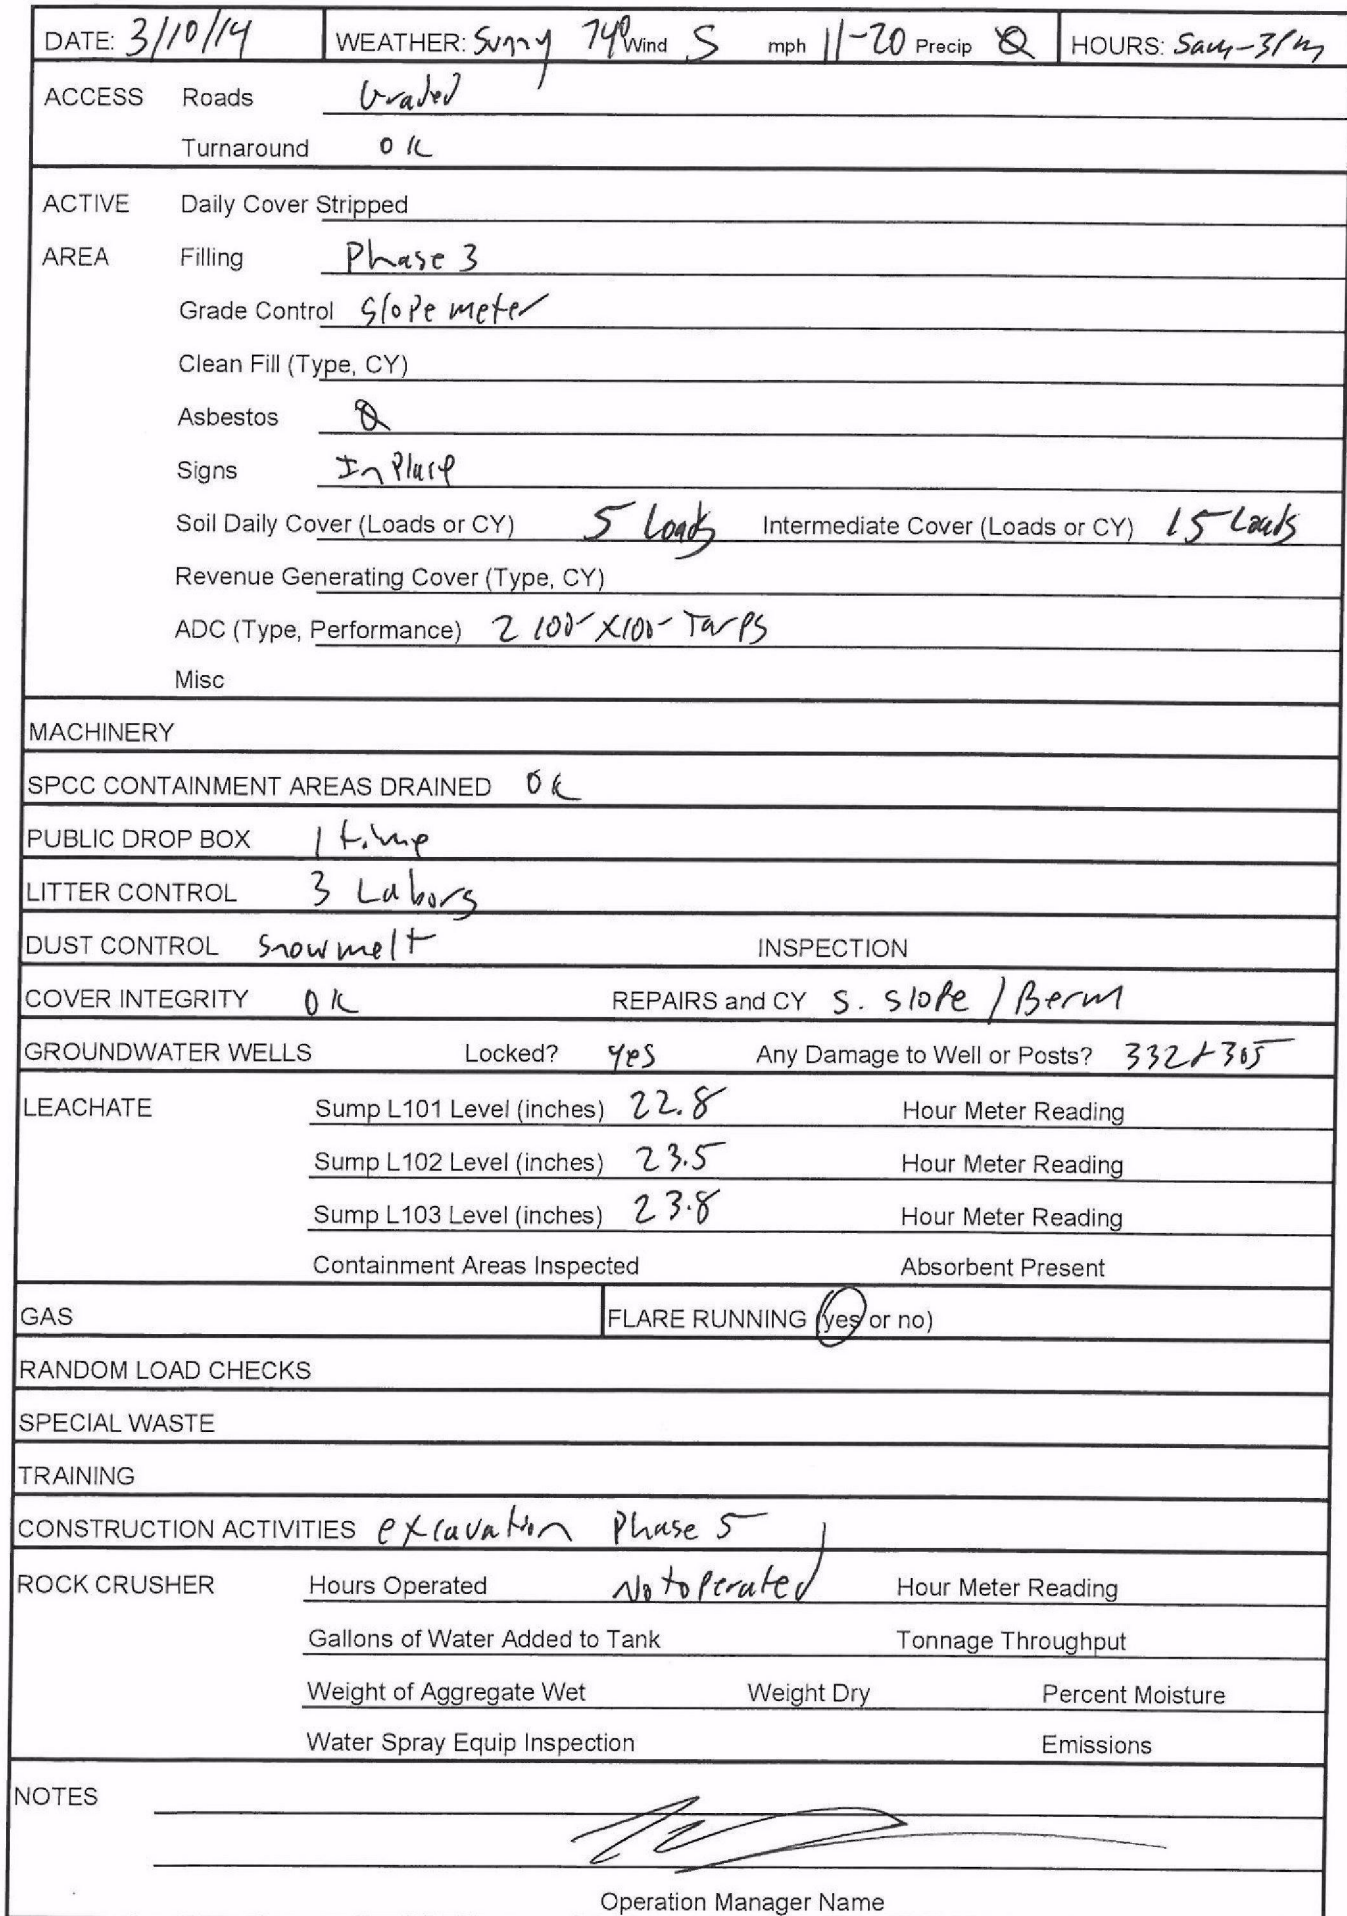 DATE: 3/10/14 WEATHER: Sunny 74° Wind S mph 11-20 Precip Ø HOURS: 5am-3pm
ACCESS Roads Graded
Turnaround OK
ACTIVE Daily Cover Stripped
AREA Filling Phase 3
Grade Control Slope meter
Clean Fill (Type, CY)
Asbestos Ø
Signs In Place
Soil Daily Cover (Loads or CY) 5 Loads Intermediate Cover (Loads or CY) 15 Loads
Revenue Generating Cover (Type, CY)
ADC (Type, Performance) 2 100' X 100' Tarps
Misc
MACHINERY
SPCC CONTAINMENT AREAS DRAINED OK
PUBLIC DROP BOX 1 time
LITTER CONTROL 3 Labors
DUST CONTROL Snowmelt INSPECTION
COVER INTEGRITY OK REPAIRS and CY S. Slope / Berm
GROUNDWATER WELLS Locked? yes Any Damage to Well or Posts? 332 & 305
LEACHATE Sump L101 Level (inches) 22.8 Hour Meter Reading
Sump L102 Level (inches) 23.5 Hour Meter Reading
Sump L103 Level (inches) 23.8 Hour Meter Reading
Containment Areas Inspected Absorbent Present
GAS FLARE RUNNING (yes or no)
RANDOM LOAD CHECKS
SPECIAL WASTE
TRAINING
CONSTRUCTION ACTIVITIES excavation Phase 5
ROCK CRUSHER Hours Operated Not operated Hour Meter Reading
Gallons of Water Added to Tank Tonnage Throughput
Weight of Aggregate Wet Weight Dry Percent Moisture
Water Spray Equip Inspection Emissions
NOTES
Operation Manager Name